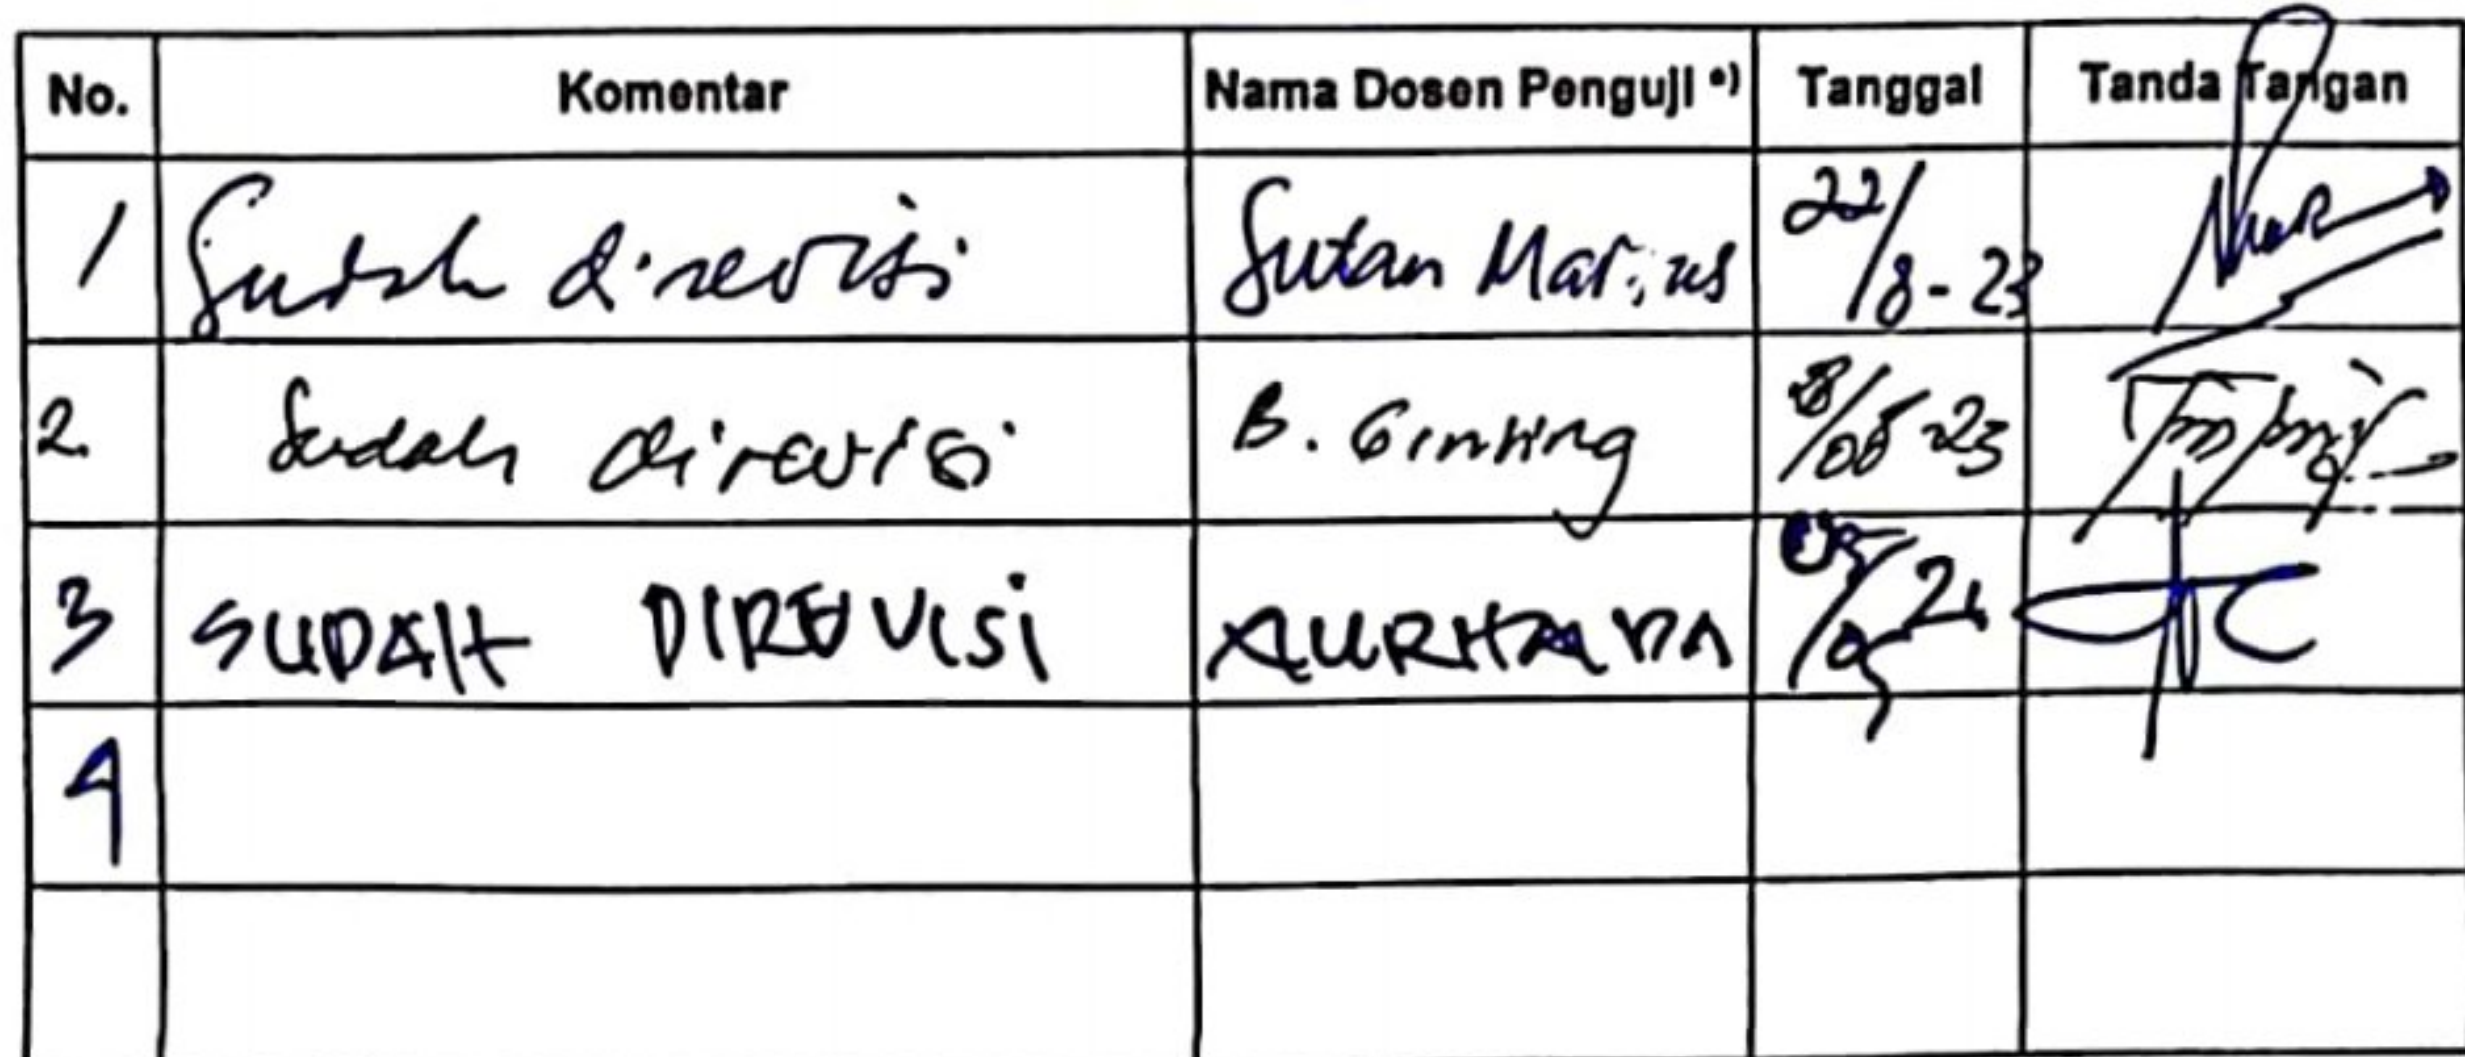 No. Komentar Nama Dosen Penguji *) Tanggal Tanda Tangan
1 Sudah direvisi Sutan Marius 22/8-23
2. Sudah direvisi B. Ginting /08-23
3 SUDAH DIREVISI
4